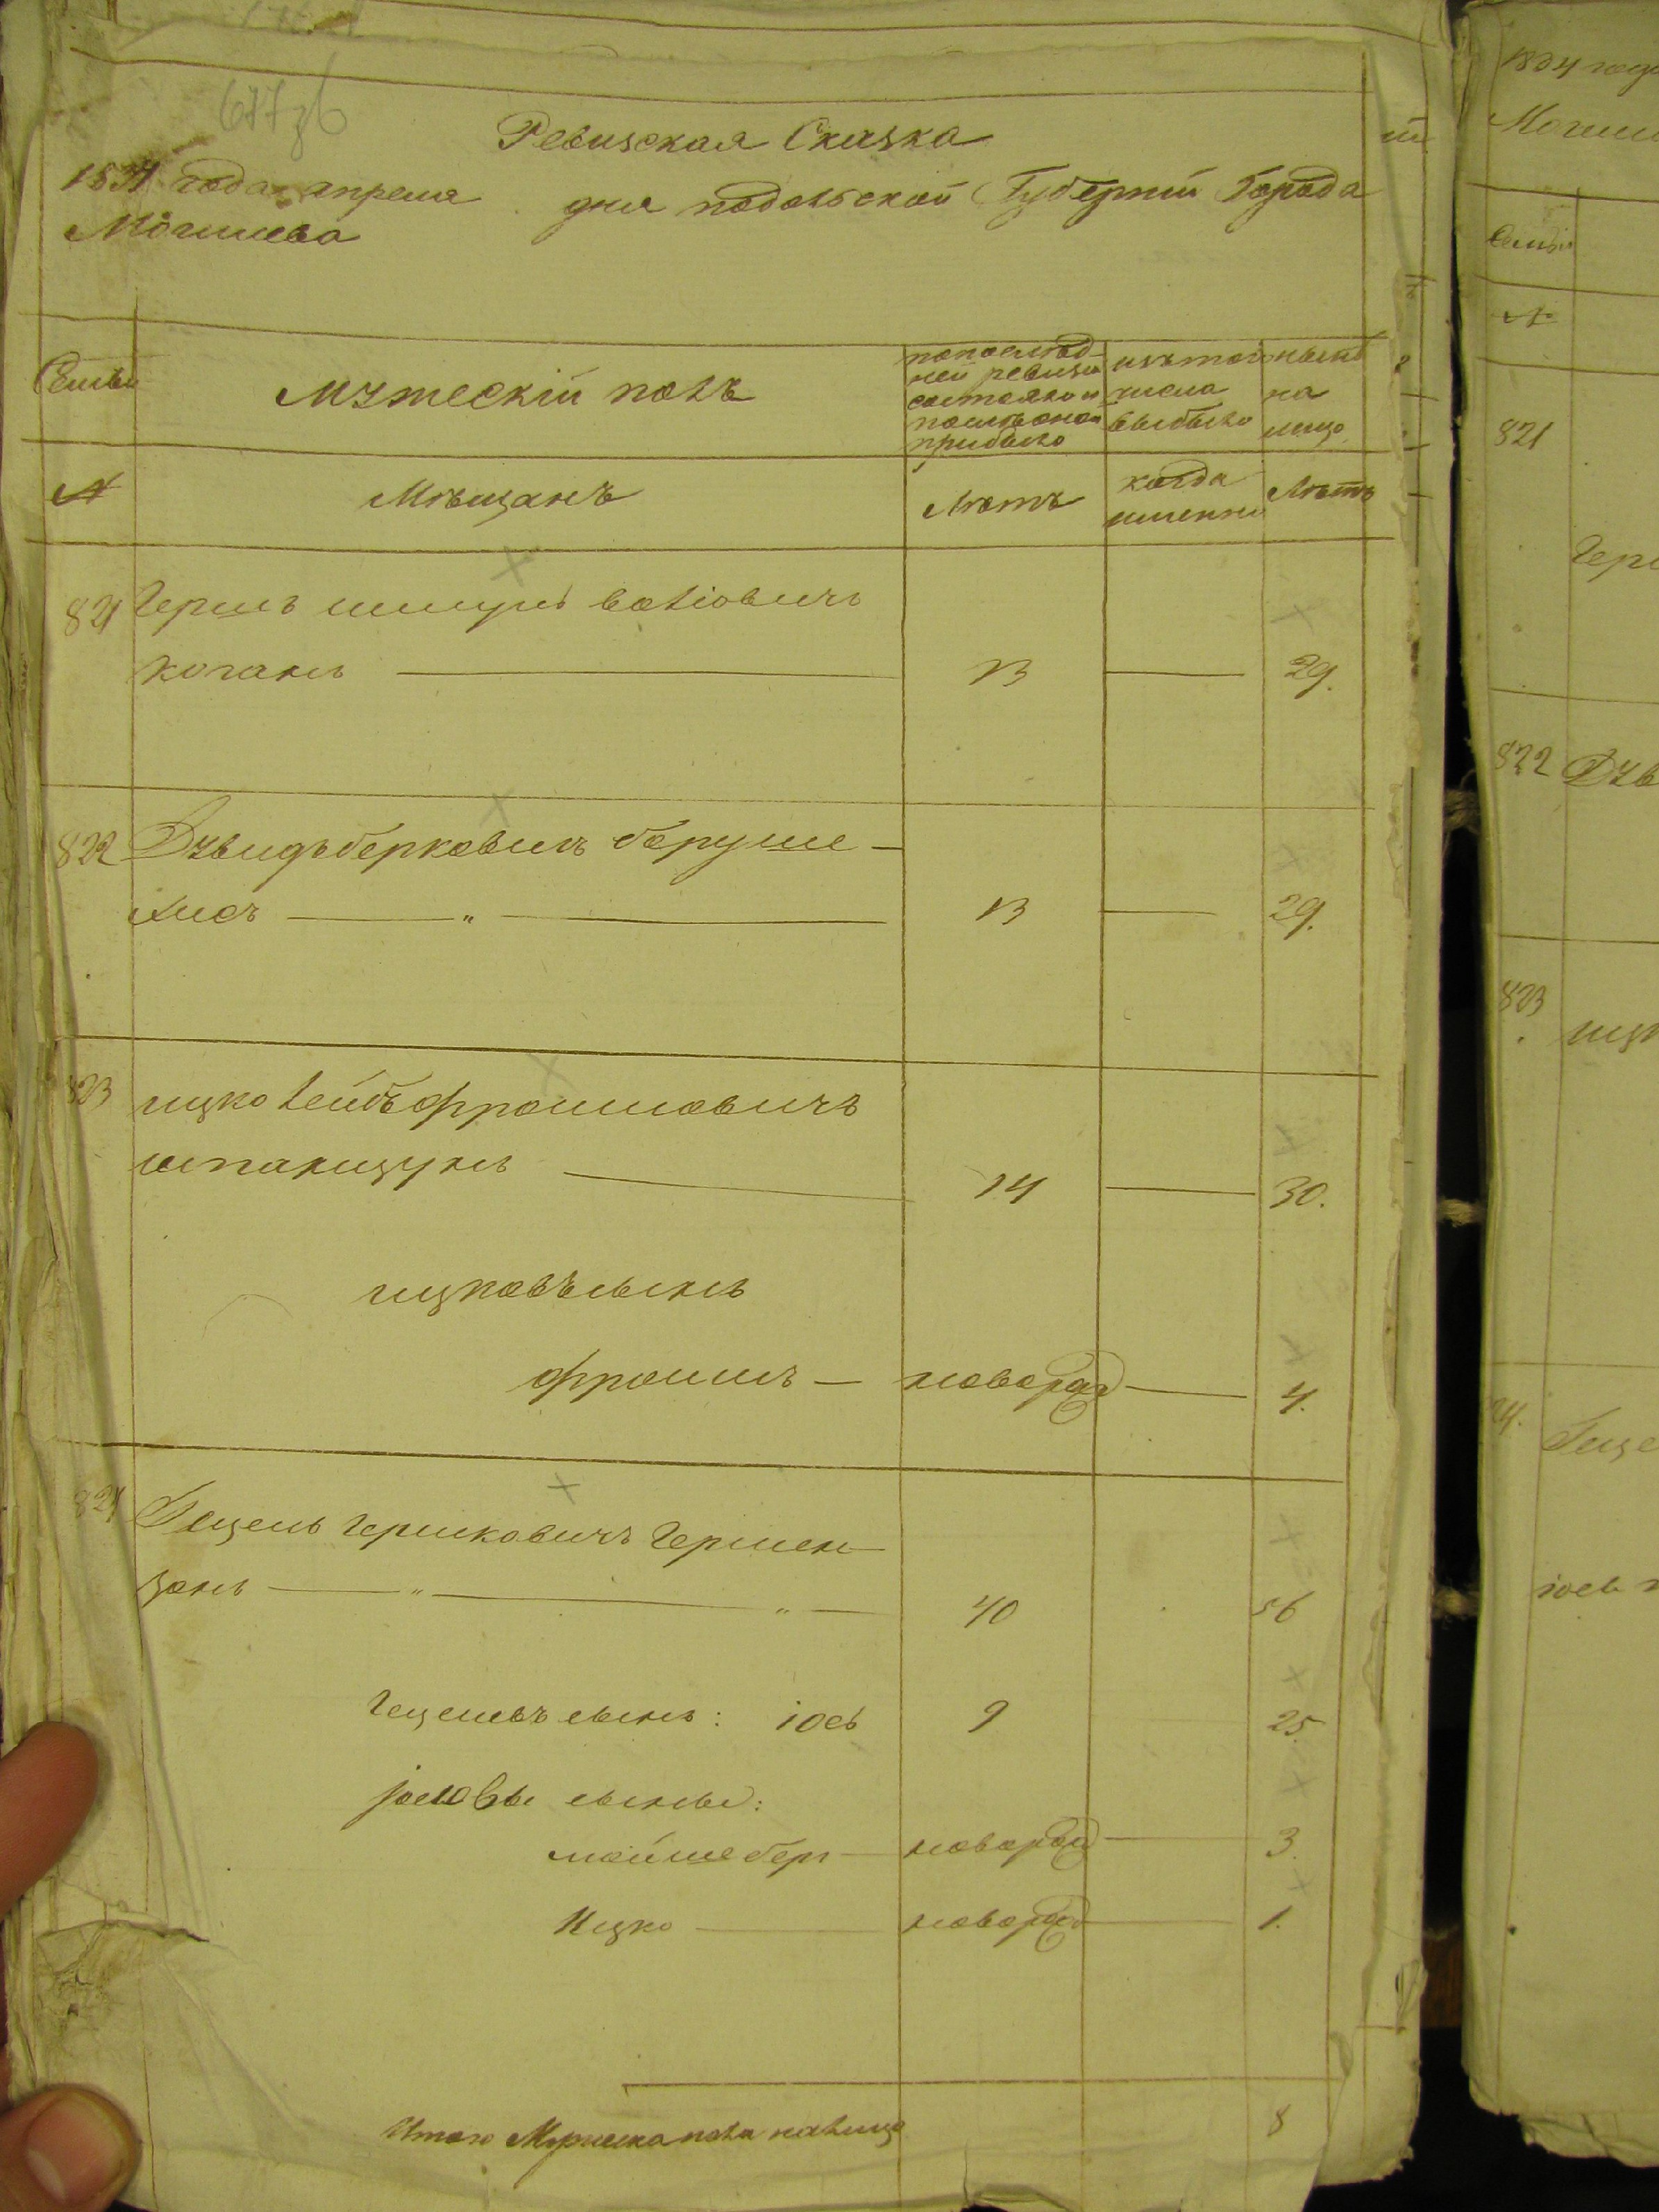 677зб
Ревизская Сказка
1834 года апреля дня подольской Губернiи Города
Могилева
Семьи
Мужескiй полъ
попослѣд-
ней ревизiи
состояло и
послѣ оной
прибыло
изъ того
числа
выбыло
нынѣ
на
лицо
№
Мѣщанъ
Лѣтъ
когда
именно
Лѣтъ
821 Гершъ шмуль волiовичъ
коганъ 13 29.
822 Дувидъ берковичъ боруше-
лисъ „ 13 29.
823 ицко лейбъ фроимовичъ
14 30.
ицковъ сынъ
фроимъ — новород 4.
824 Гецель гершковичъ гершен-
зонъ „ „ 40 56
гецелевъ сынъ: iось 9 25
iосiовы сыны:
мойше бер новород 3.
Ицко новород 1.
Итого Мужеска пола налицо 8
1834 года
Семьи
№
821
822
823
ицк
Геце